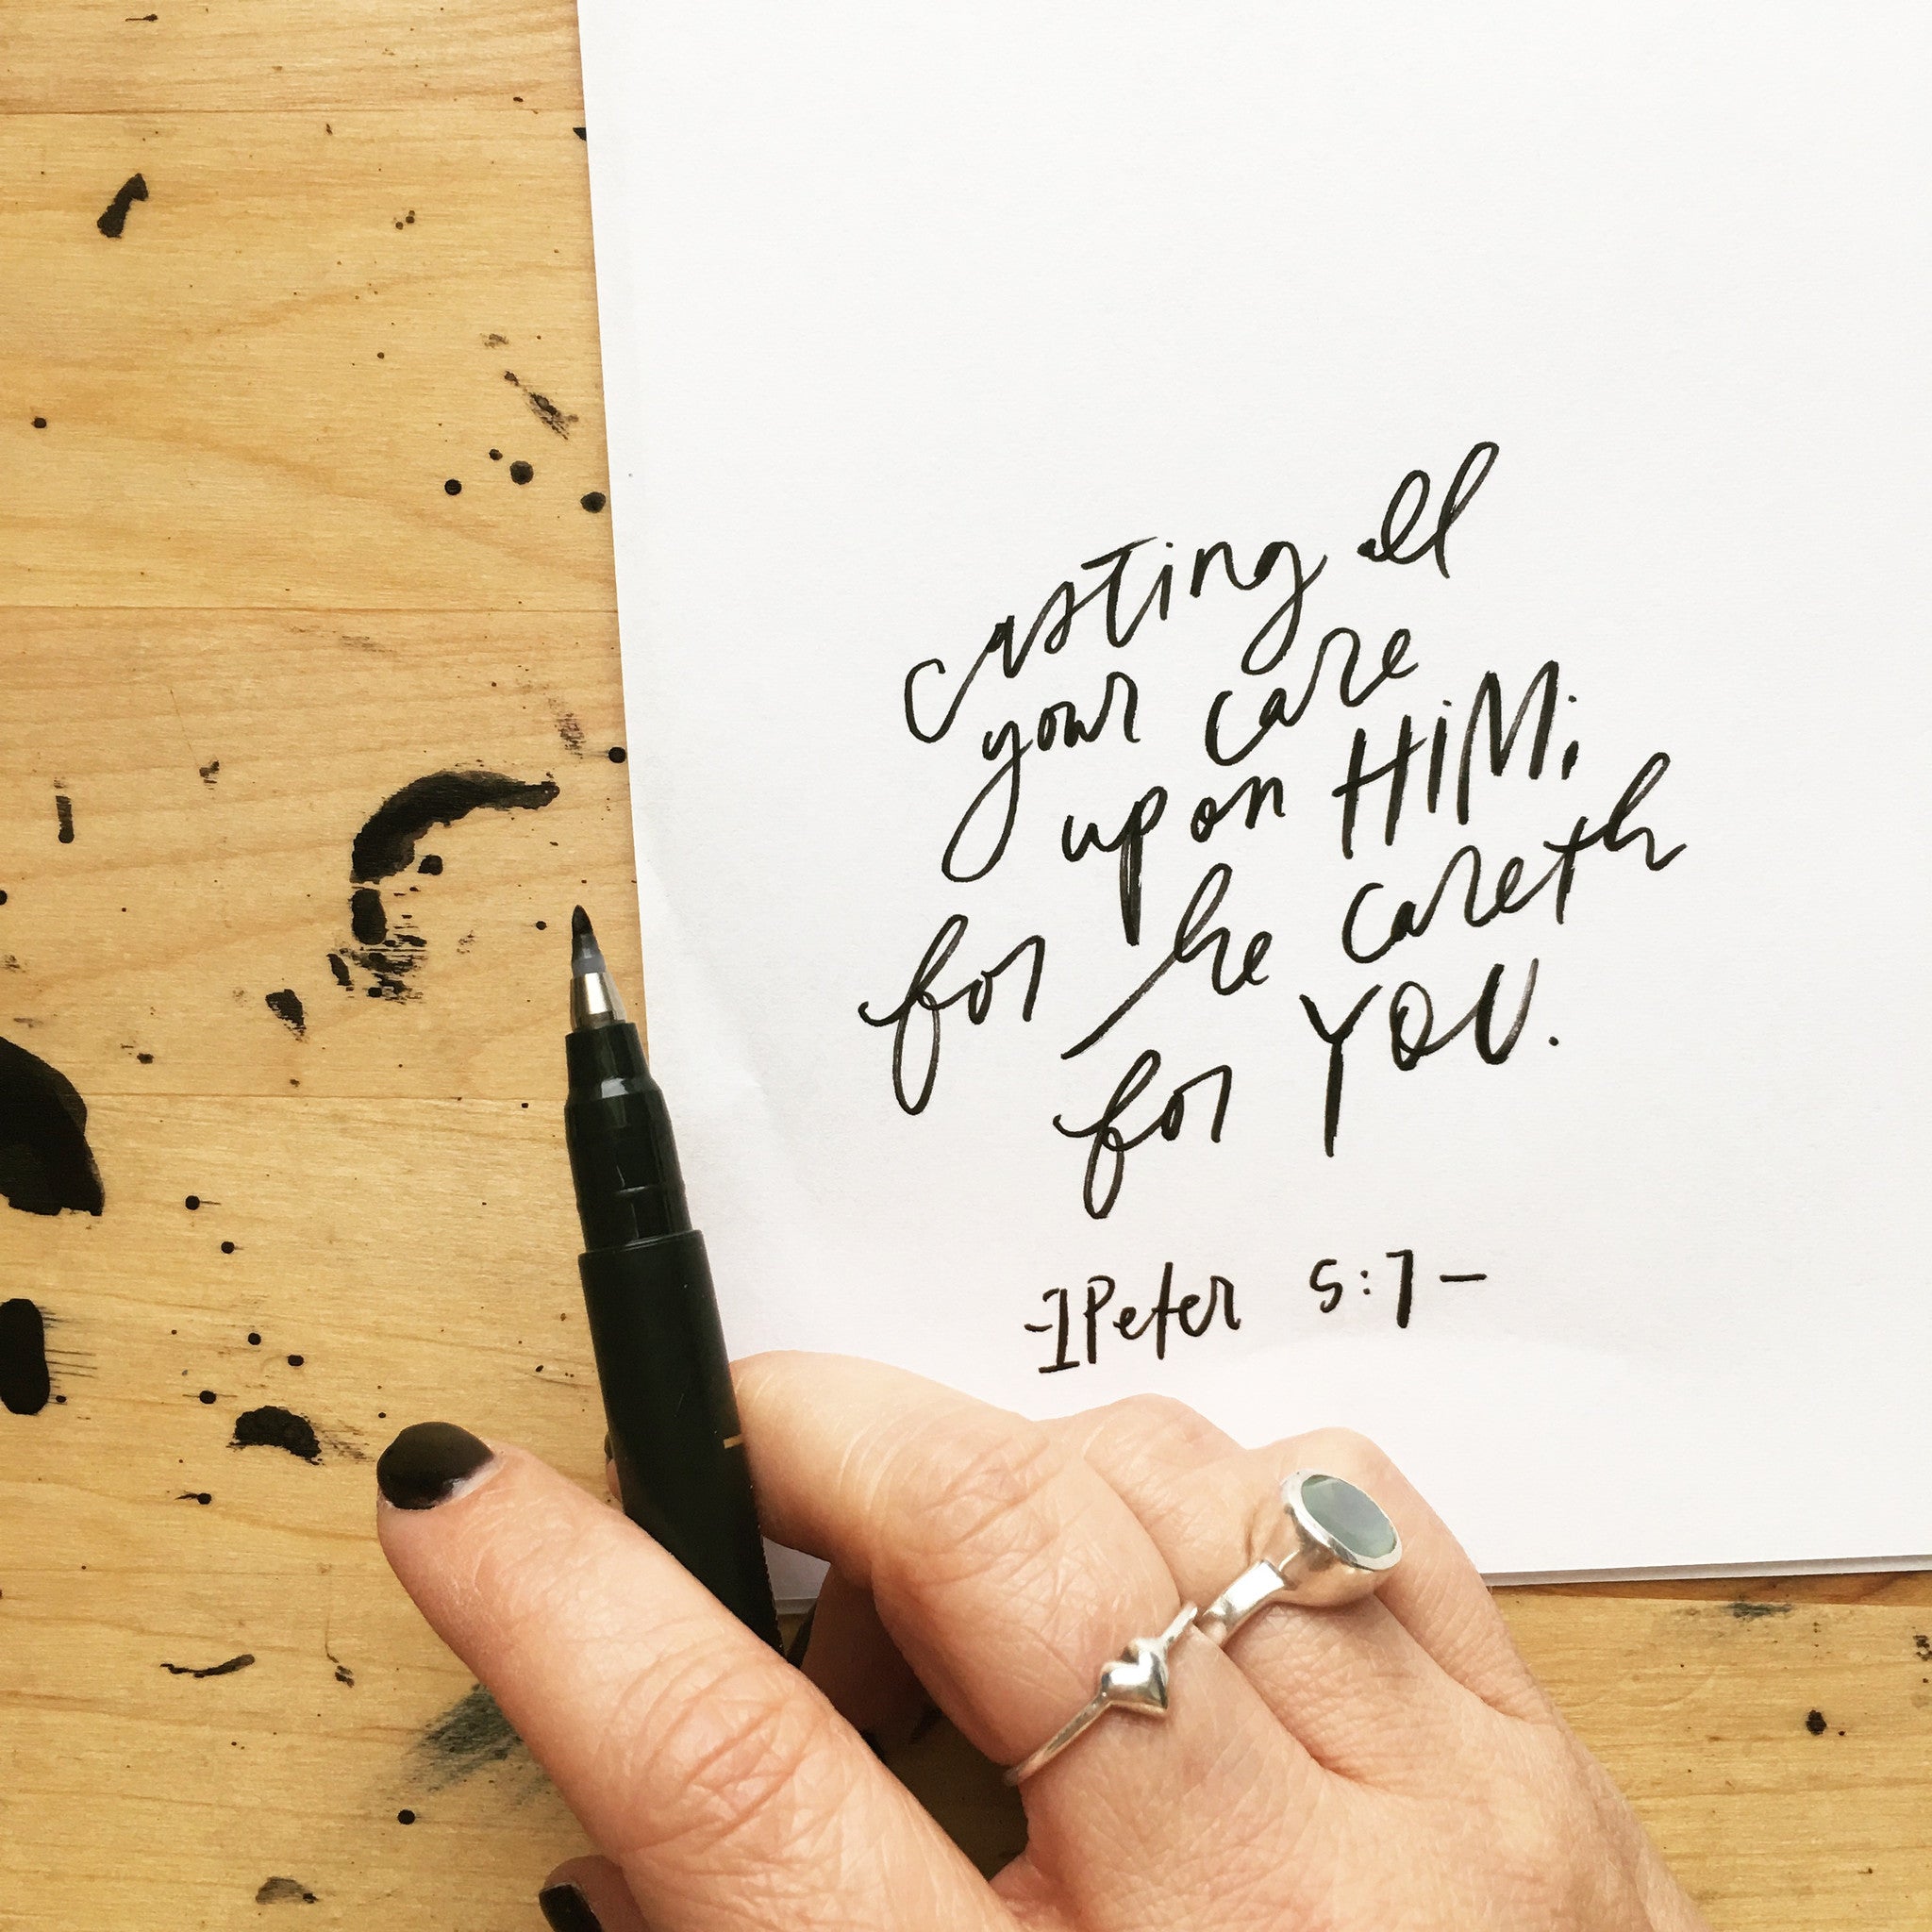 casting all
your care
upon HiM;
for he careth
for YOU.
-1 Peter 5:7-